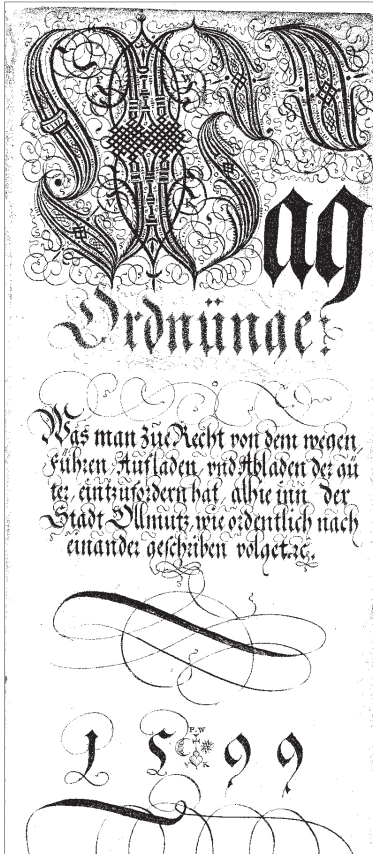 Wag
Ordnünge:
Was man zue Recht von dem wegen
Führen, Aufladen, vnd Abladen der gü
ter, eintzufordern hat, alhie inn der
Stadt Ollmutz, wie ordentlich nach
einander geschriben volget.ꝛc.
P W
1 5 9 9